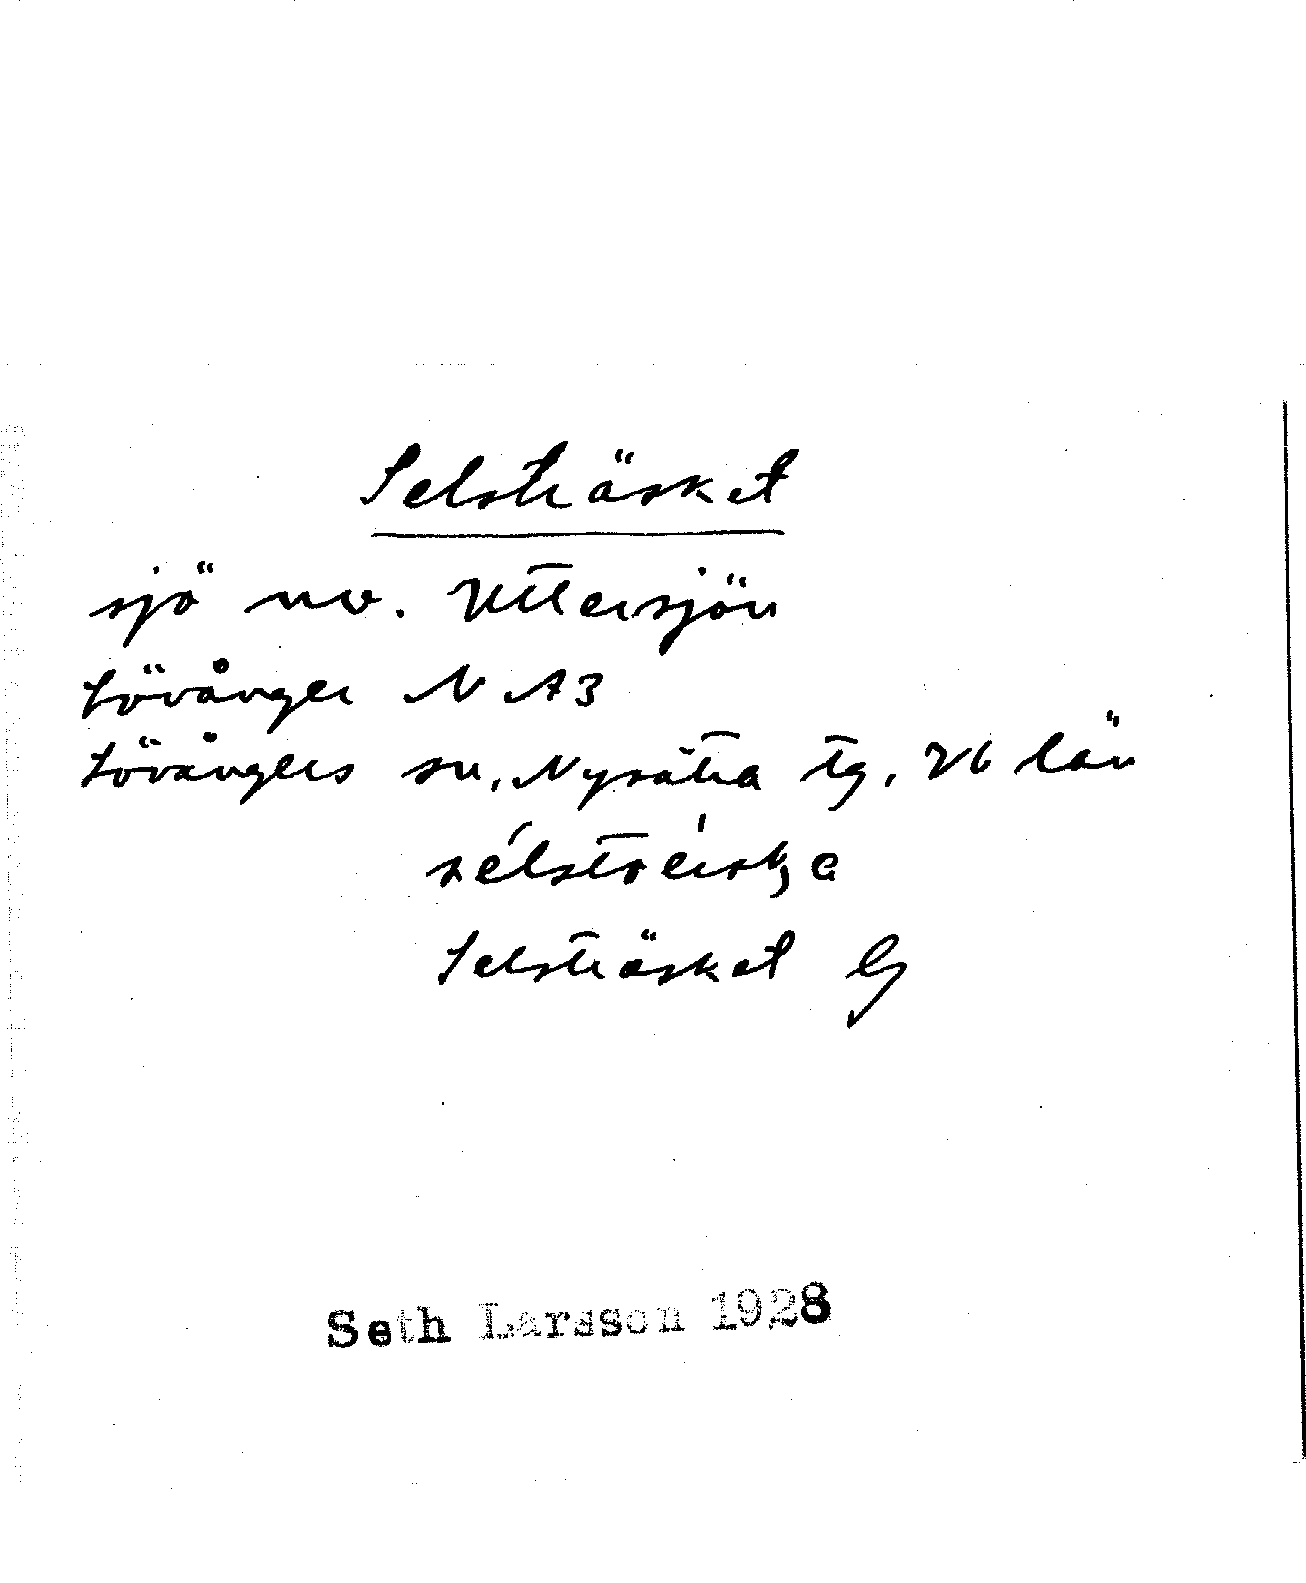 Selsträsket
sjö nv. Uttersjön
Lövånger N A3
Lövångers sn, Nysätra tg, Vb län
sélstrèisk
Selsträsket G
Seth Larsson 1928